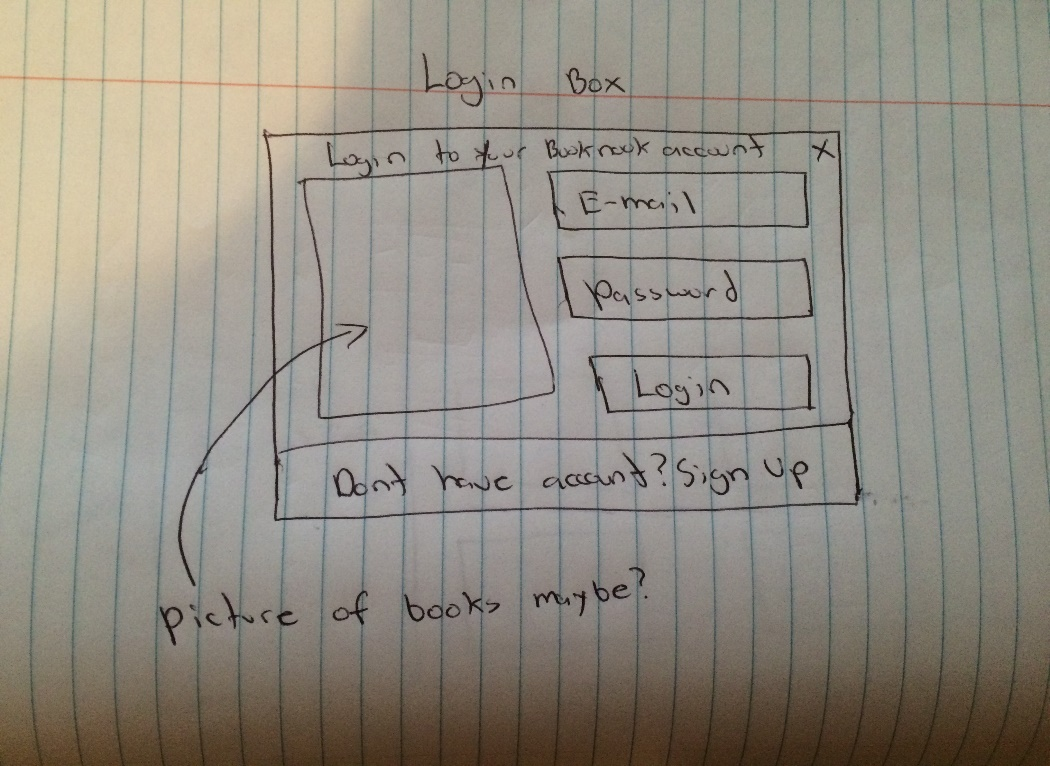 Login Box
Login to your Booknook account X
E-mail
Password
Login
Dont have account? Sign Up
picture of books maybe?